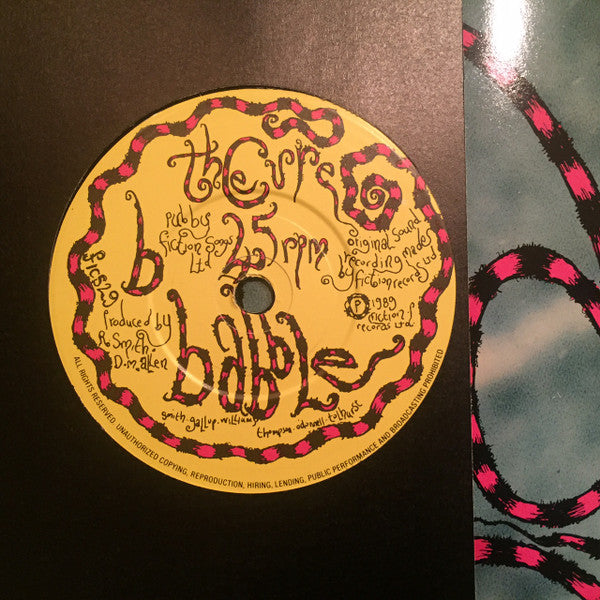 the Cure
45 rpm
b
Pub by
fiction Songs
Ltd
original sound
recording made
by fiction records Ltd
ficS 29
Produced by
R. Smith.
D.m. allen
℗ 1989
fiction
records Ltd.
babble
smith. gallup. williams
thompson. odonnell. tolhurst
ALL RIGHTS RESERVED. UNAUTHORIZED COPYING, REPRODUCTION, HIRING, LENDING, PUBLIC PERFORMANCE AND BROADCASTING PROHIBITED